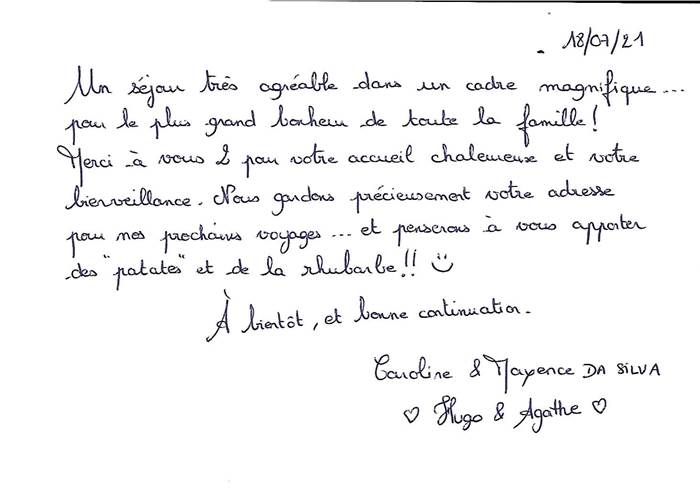 18/07/21
Un séjour très agréable dans un cadre magnifique...
pour le plus grand bonheur de toute la famille !
Merci à vous 2 pour votre accueil chaleureux et votre
bienveillance. Nous gardons précieusement votre adresse
pour nos prochains voyages ... et penserons à vous apporter
des "patates" et de la rhubarbe !! ☺
À bientôt, et bonne continuation.
Caroline & Mayence DA SILVA
♡ Hugo & Agathe ♡